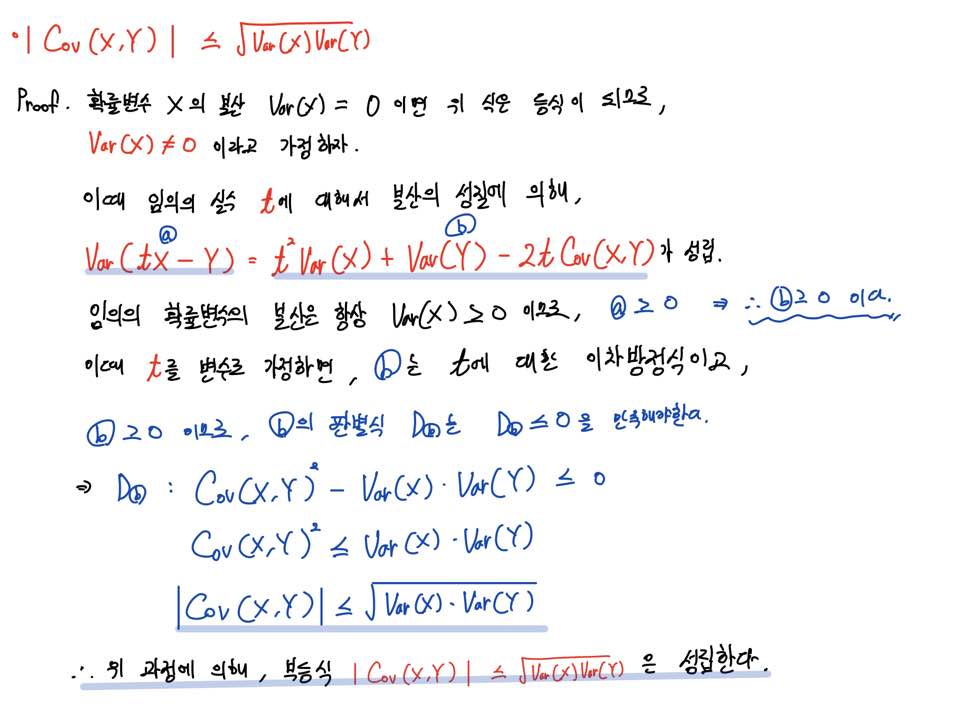 • |Cov(X,Y)| ≤ √Var(X)Var(Y)
Proof. 확률변수 X의 분산 Var(X) = 0 이면 위 식은 등식이 되므로,
Var(X) ≠ 0 이라고 가정하자.
이때 임의의 실수 t에 대해서 분산의 성질에 의해,
ⓐ ⓑ
Var(tX − Y) = t² Var(X) + Var(Y) − 2t Cov(X,Y) 가 성립.
임의의 확률변수의 분산은 항상 Var(X) ≥ 0 이므로, ⓐ ≥ 0 ⇒ ∴ ⓑ ≥ 0 이다.
이때 t를 변수로 가정하면, ⓑ는 t에 대한 이차방정식이고,
ⓑ ≥ 0 이므로, ⓑ의 판별식 Dⓑ는 Dⓑ ≤ 0 을 만족해야한다.
⇒ Dⓑ : Cov(X,Y)² − Var(X) · Var(Y) ≤ 0
Cov(X,Y)² ≤ Var(X) · Var(Y)
|Cov(X,Y)| ≤ √Var(X) · Var(Y)
∴ 위 과정에 의해, 부등식 |Cov(X,Y)| ≤ √Var(X)Var(Y) 은 성립한다.